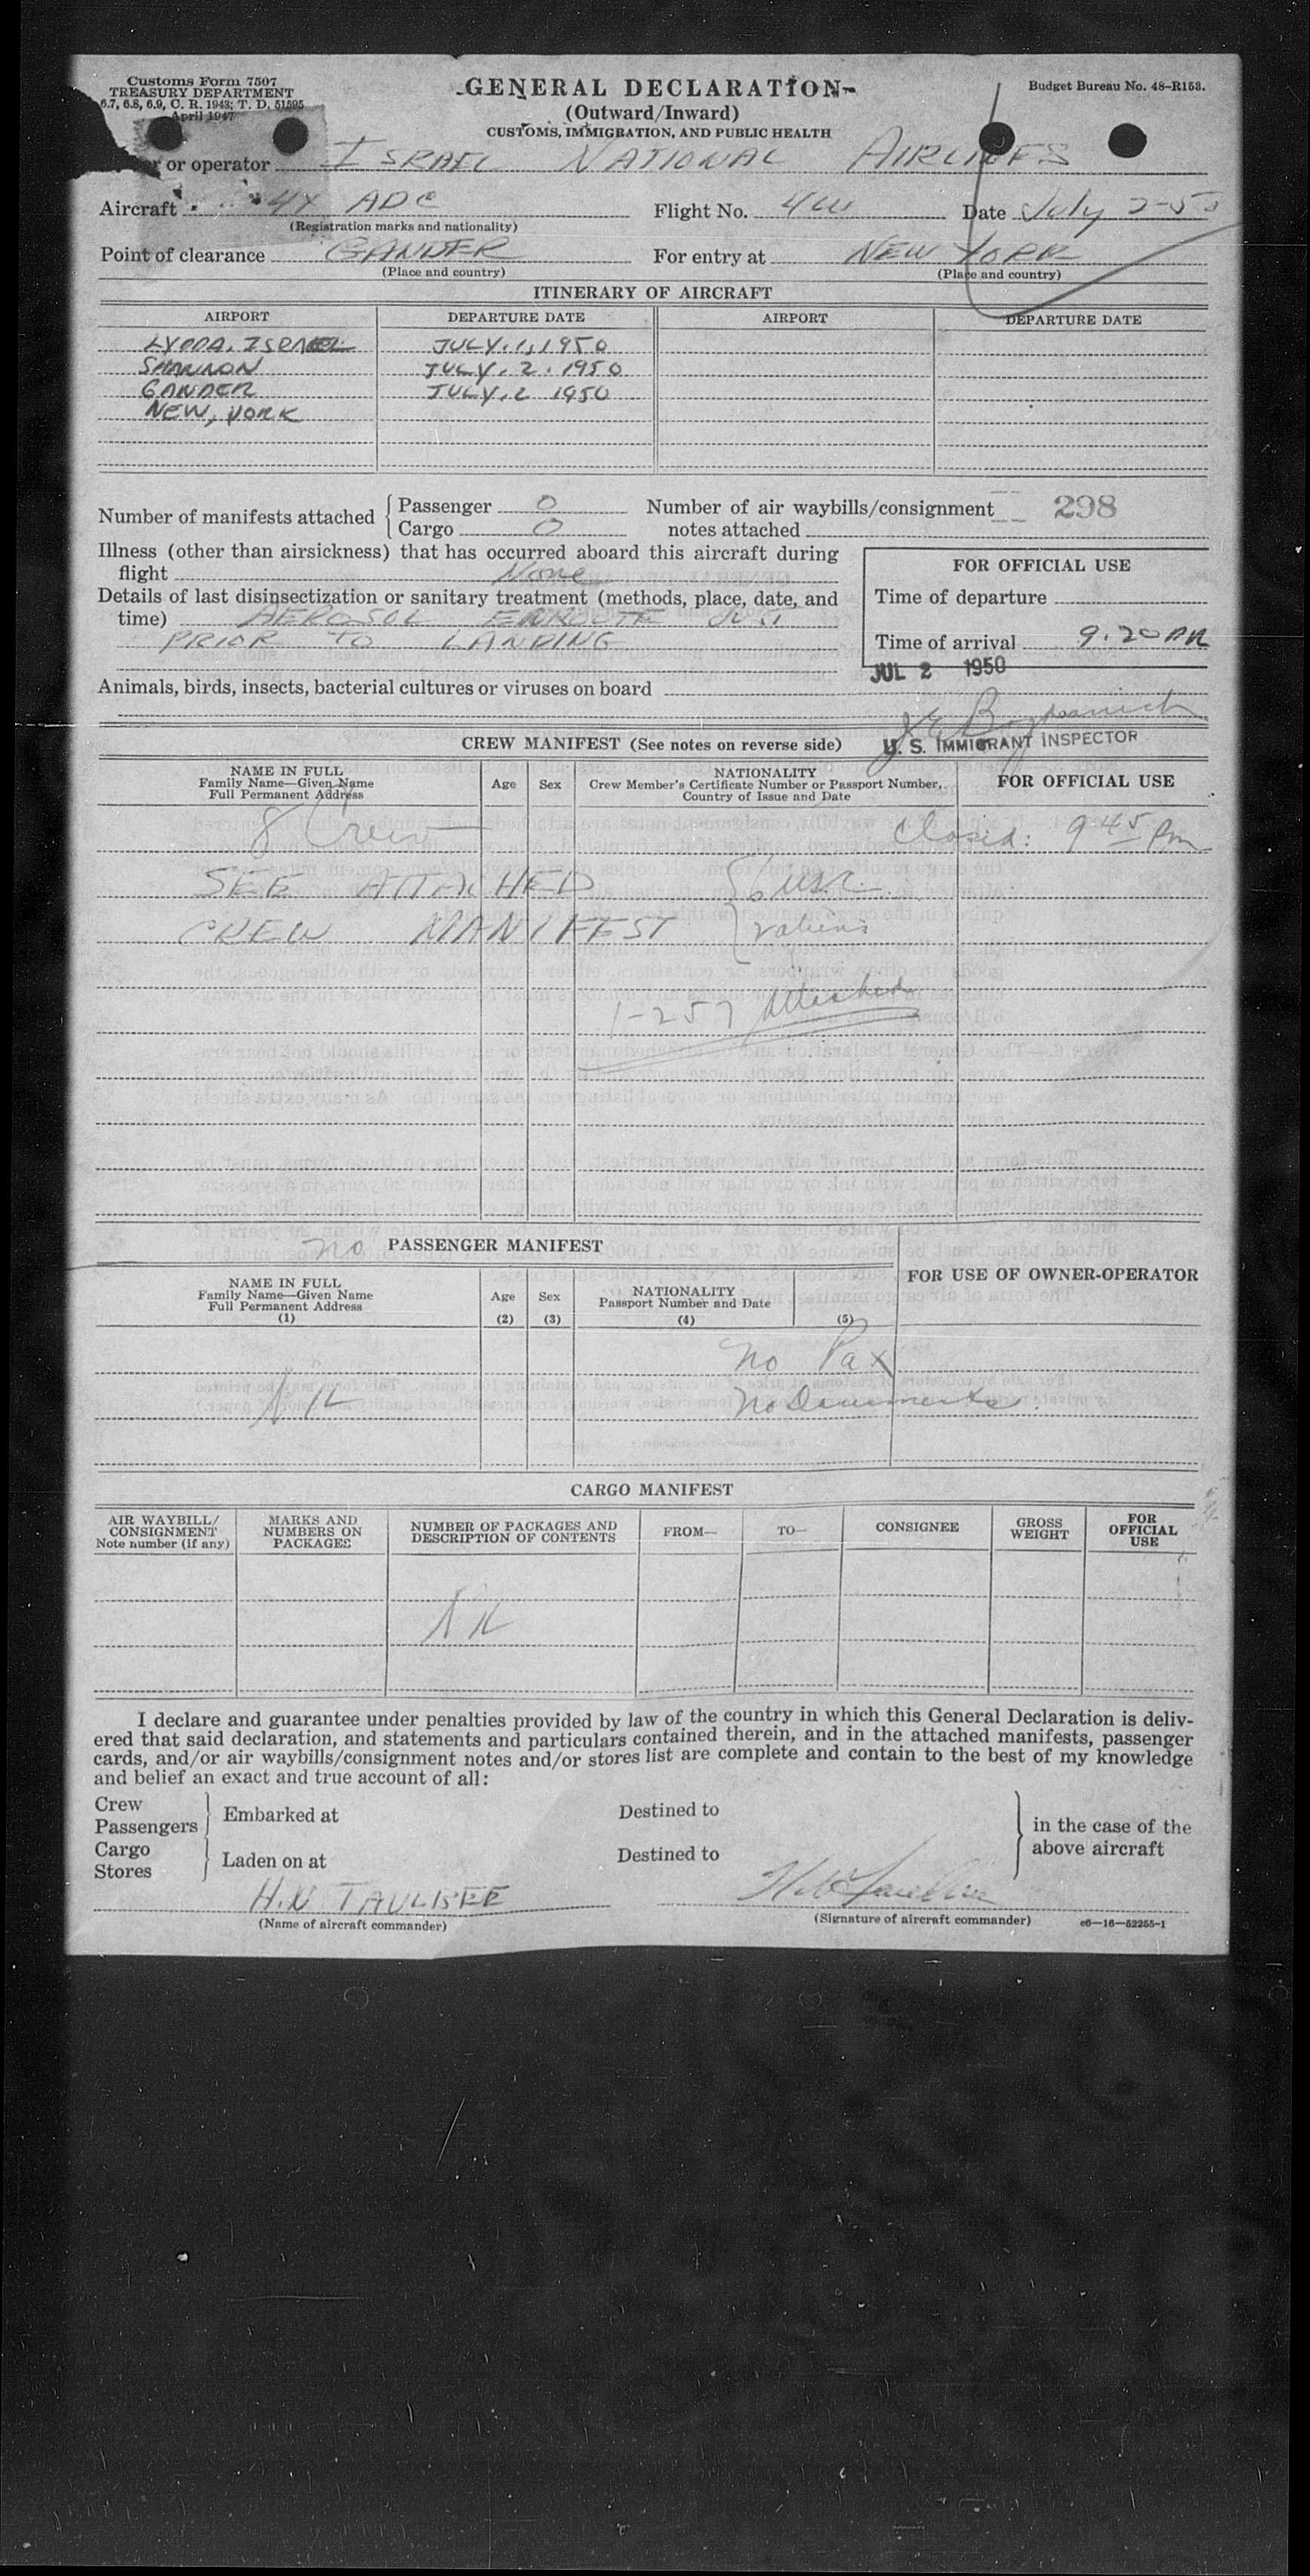 Customs Form 7507
TREASURY DEPARTMENT
6.7, 6.8, 6.9, C. R. 1943; T. D. 51595
April 1947
GENERAL DECLARATION
(Outward/Inward)
CUSTOMS, IMMIGRATION, AND PUBLIC HEALTH
Budget Bureau No. 48-R153.
or operator ISRAEL NATIONAL AIRLINES
Aircraft 4X ADC Flight No. 4W Date July 2-50
(Registration marks and nationality)
Point of clearance GANDER For entry at NEW YORK
(Place and country) (Place and country)
ITINERARY OF AIRCRAFT
AIRPORT DEPARTURE DATE AIRPORT DEPARTURE DATE
LYDDA, ISRAEL JULY. 1, 1950
SHANNON JULY. 2. 1950
GANDER JULY. 2 1950
NEW, YORK
Number of manifests attached { Passenger 0 Number of air waybills/consignment 298
Cargo 0 notes attached
Illness (other than airsickness) that has occurred aboard this aircraft during
flight None
FOR OFFICIAL USE
Details of last disinsectization or sanitary treatment (methods, place, date, and
time) AEROSOL ENROUTE JUST
PRIOR TO LANDING
Time of departure
Time of arrival 9.20 PM
JUL 2 1950
Animals, birds, insects, bacterial cultures or viruses on board
U. S. IMMIGRANT INSPECTOR
CREW MANIFEST (See notes on reverse side)
NAME IN FULL
Family Name—Given Name
Full Permanent Address
Age Sex
NATIONALITY
Crew Member's Certificate Number or Passport Number,
Country of Issue and Date
FOR OFFICIAL USE
8 Crew Closed: 9 45 Pm
SEE ATTACHED 6 USC.
CREW MANIFEST 2 aliens
1-257 attached
no PASSENGER MANIFEST
NAME IN FULL
Family Name—Given Name
Full Permanent Address
(1)
Age
(2)
Sex
(3)
NATIONALITY
Passport Number and Date
(4) (5)
FOR USE OF OWNER-OPERATOR
no Pax
NIL no Documents.
CARGO MANIFEST
AIR WAYBILL/
CONSIGNMENT
Note number (if any)
MARKS AND
NUMBERS ON
PACKAGES
NUMBER OF PACKAGES AND
DESCRIPTION OF CONTENTS
FROM— TO— CONSIGNEE
GROSS
WEIGHT
FOR
OFFICIAL
USE
NIL
I declare and guarantee under penalties provided by law of the country in which this General Declaration is deliv-
ered that said declaration, and statements and particulars contained therein, and in the attached manifests, passenger
cards, and/or air waybills/consignment notes and/or stores list are complete and contain to the best of my knowledge
and belief an exact and true account of all:
Crew
Passengers } Embarked at Destined to
Cargo
Stores } Laden on at Destined to
} in the case of the
above aircraft
H.N TAULBEE
(Name of aircraft commander) (Signature of aircraft commander) c6—16—52255-1